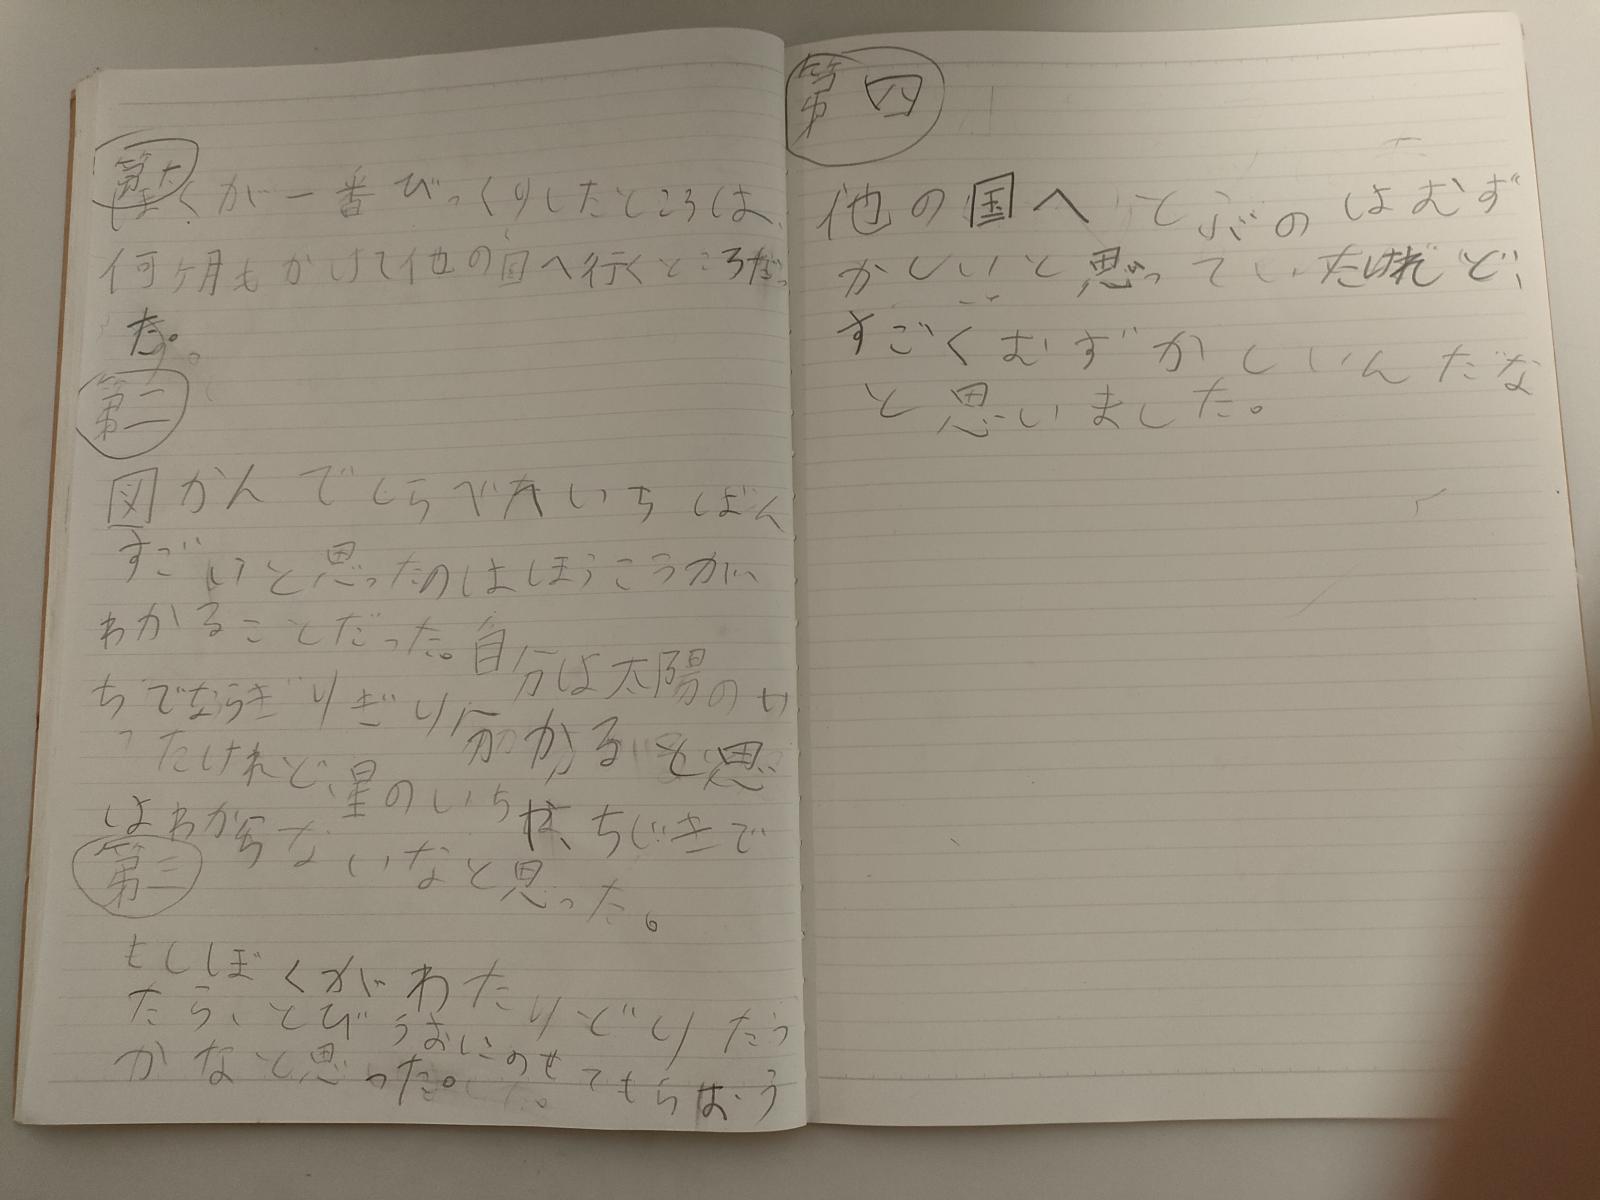 第一
ぼくが一番びっくりしたところは、
何ヶ月もかけて他の国へ行くところだっ
た。
第二
図かんでしらべたいちばん
すごいと思ったのはほうこうが、
わかることだった。自分は太陽のい
ちでならぎりぎり分かると思
ったけれど、星のいち、ちじきで
はわからないなと思った。
第三
もしぼくがわたりどりだっ
たら、とびうおにのせてもらおう
かなと思った。
第四
他の国へとぶのはむず
かしいと思っていたけれど、
すごくむずかしいんだな
と思いました。